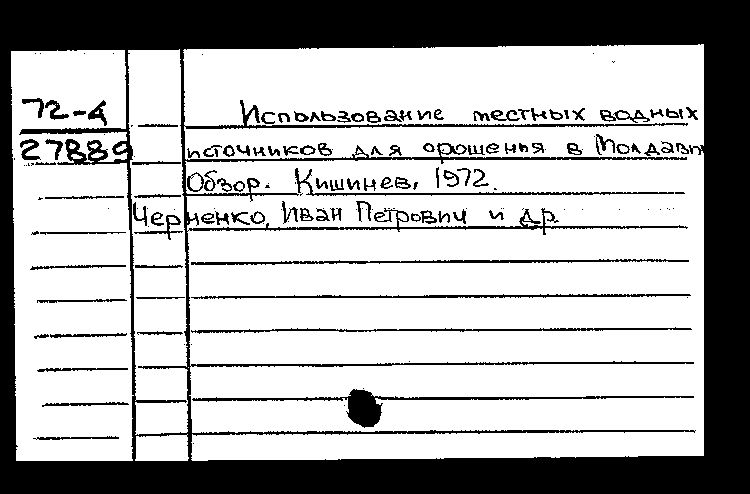 72-4
27889
Использование местных водных
источников для орошения в Молдавии
Обзор. Кишинев, 1972.
Черненко, Иван Петрович и др.